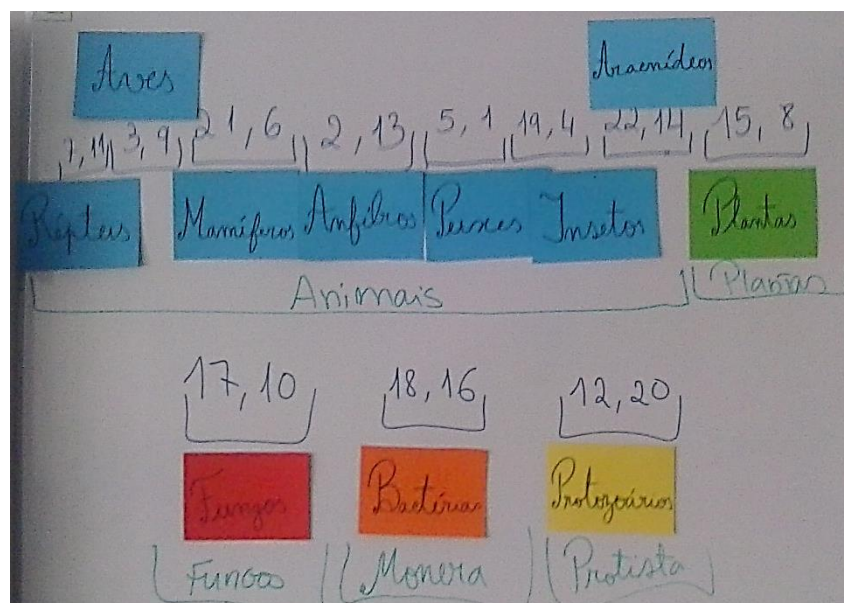 Aves
Aracnídeos
7, 11 3, 9 21, 6 2, 13 5, 1 19, 4 22, 14 15, 8
Répteis Mamíferos Anfíbios Peixes Insetos Plantas
Animais Plantas
17, 10 18, 16 12, 20
Fungos Bactérias Protozoários
Fungos Monera Protista